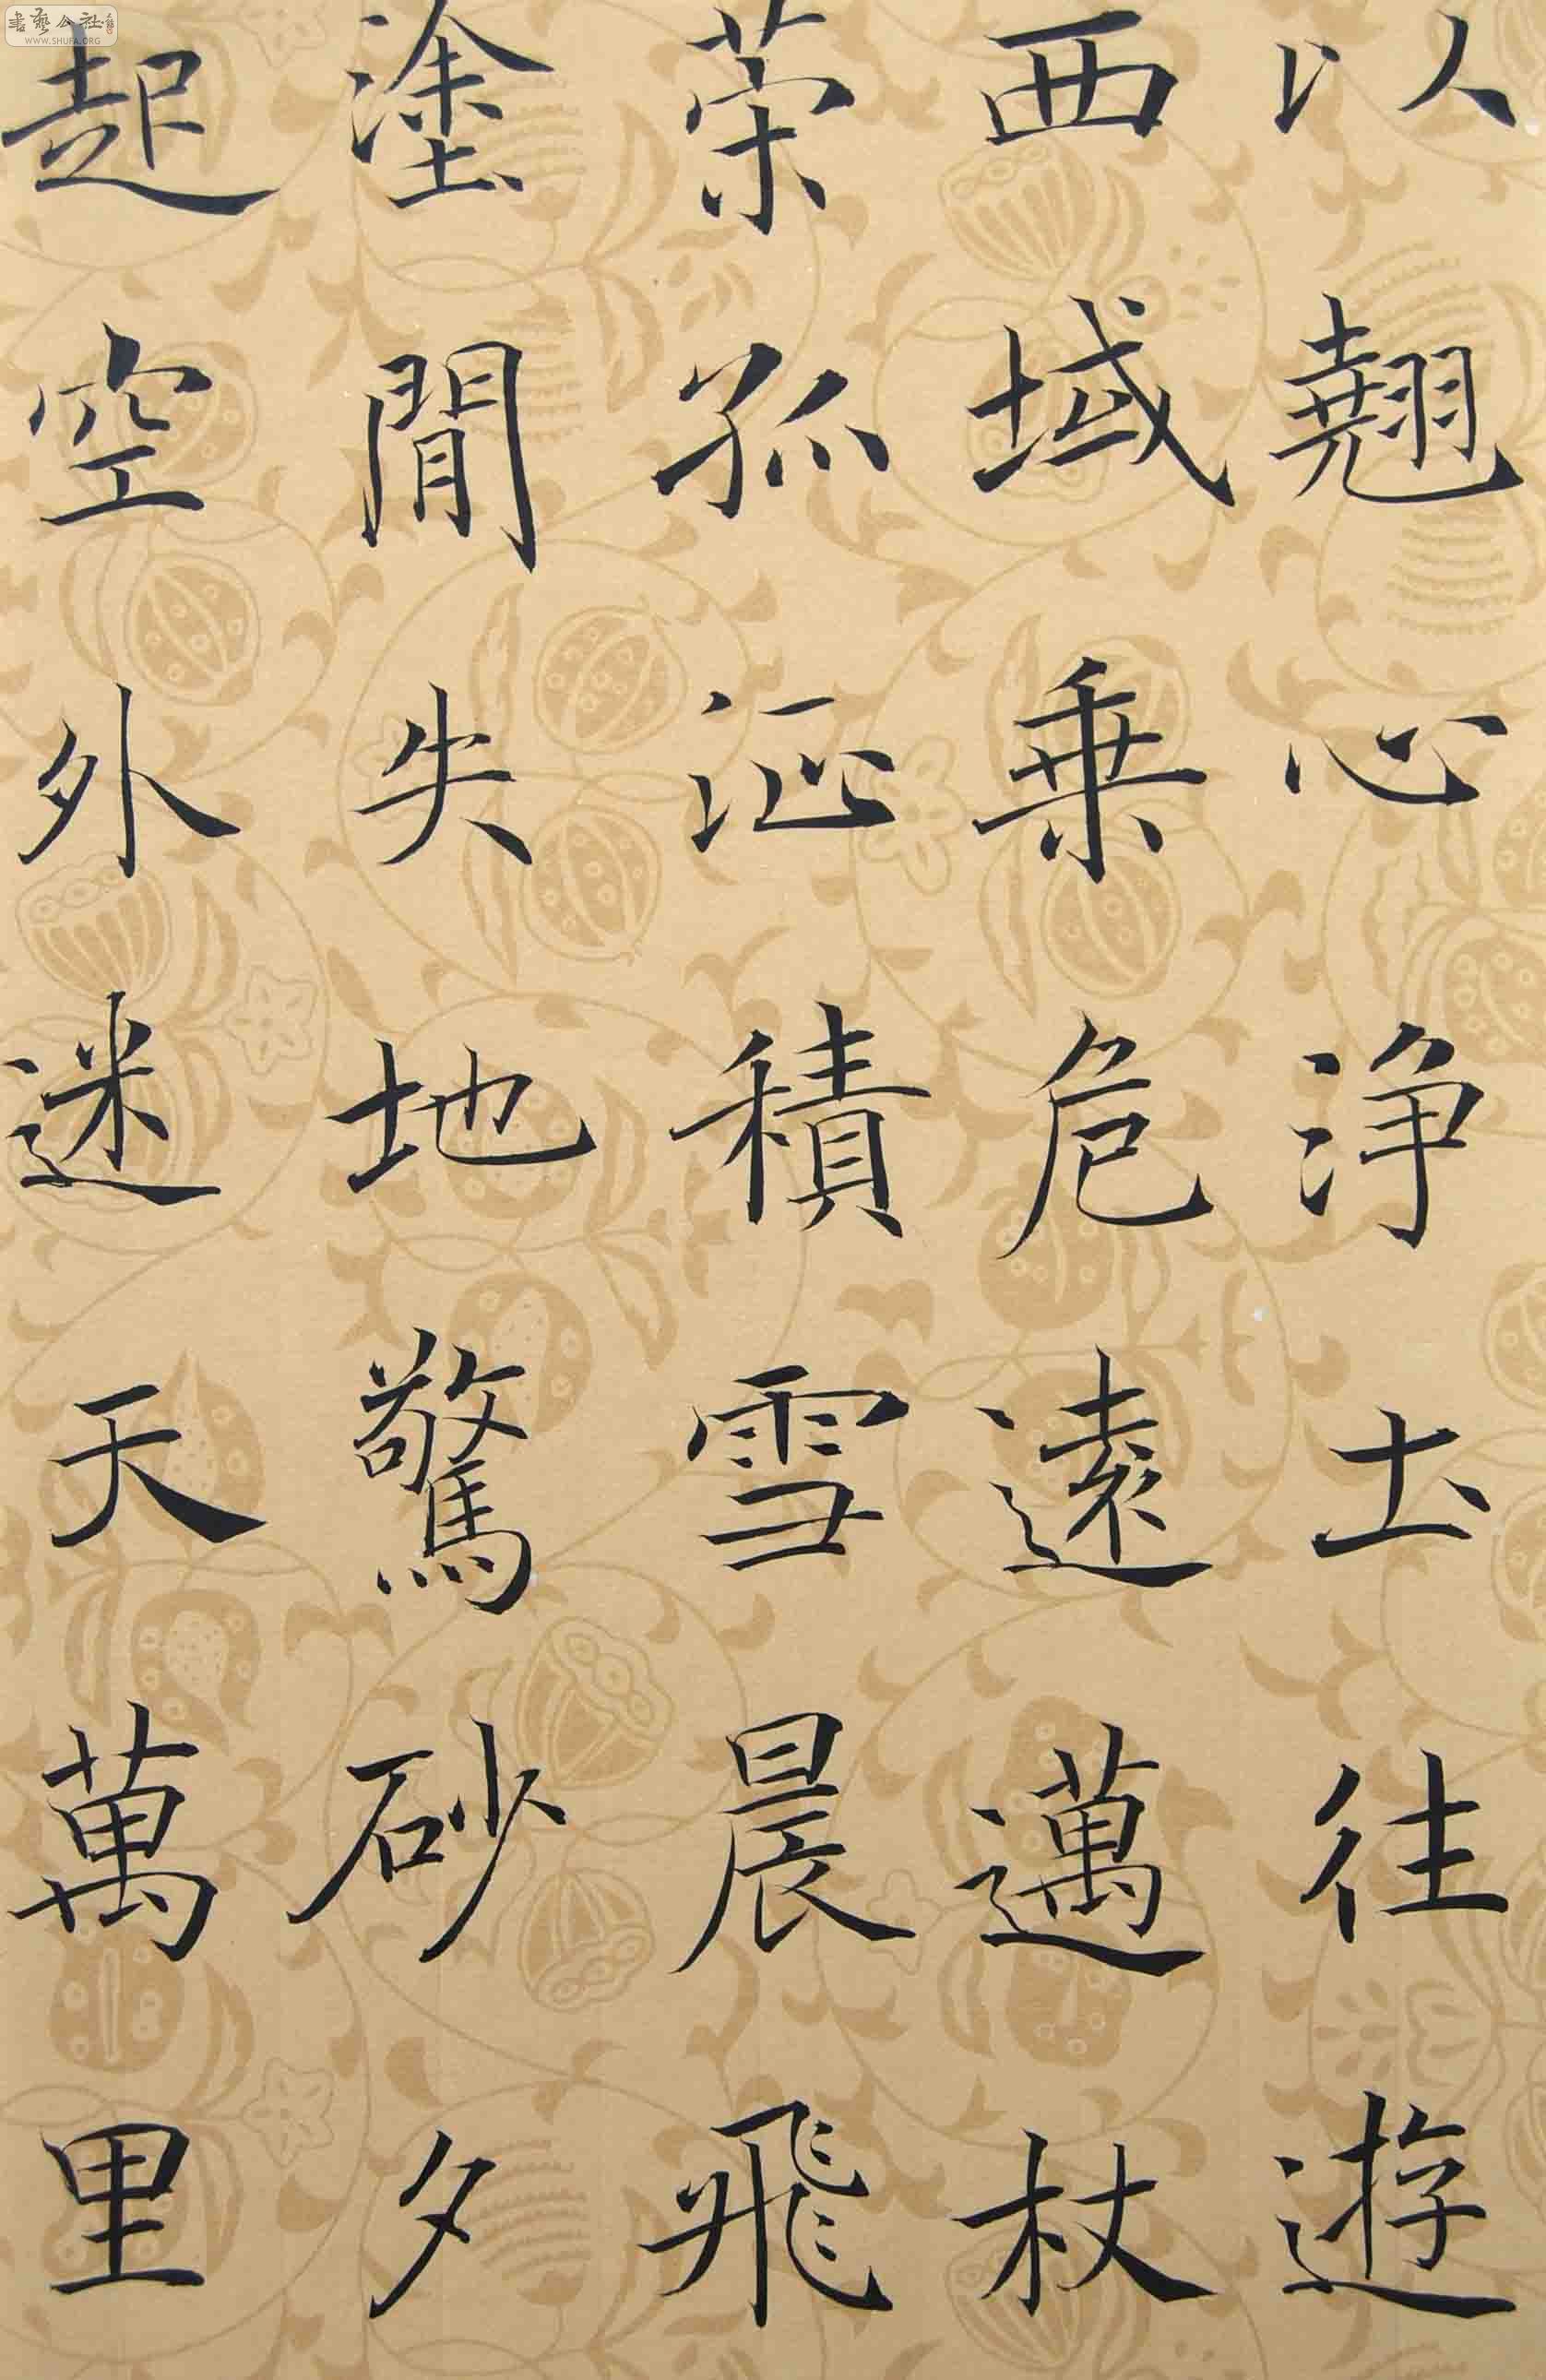 以翹心浄土往遊
西域乗危遠邁杖
茦孤征積雪晨飛
塗閒失地驚砂夕
起空外迷天萬里
書藝公社
WWW.SHUFA.ORG